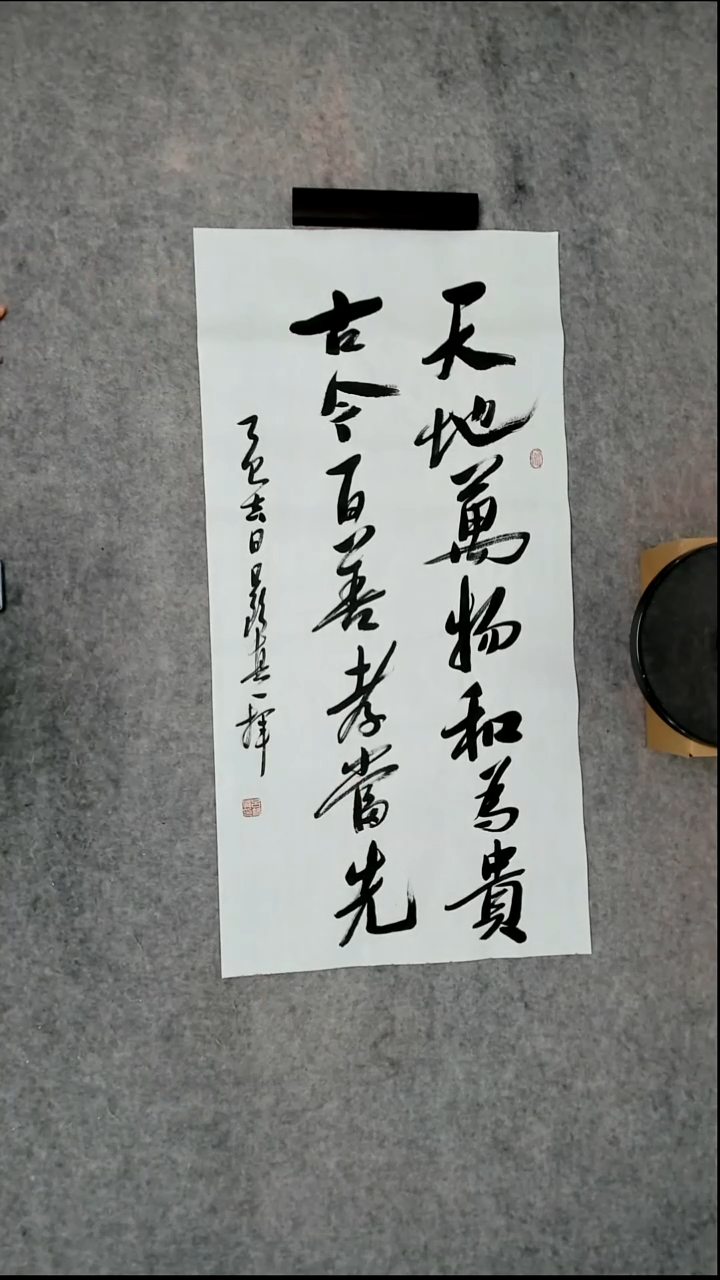 天地萬物和為貴
古今百善孝當先
吉日